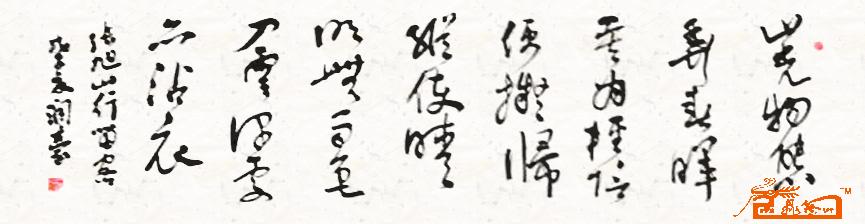 山光物態
弄春暉
莫為輕陰
便擬歸
縱使晴
明無雨色
入雲深處
亦沾衣
張旭山行留客